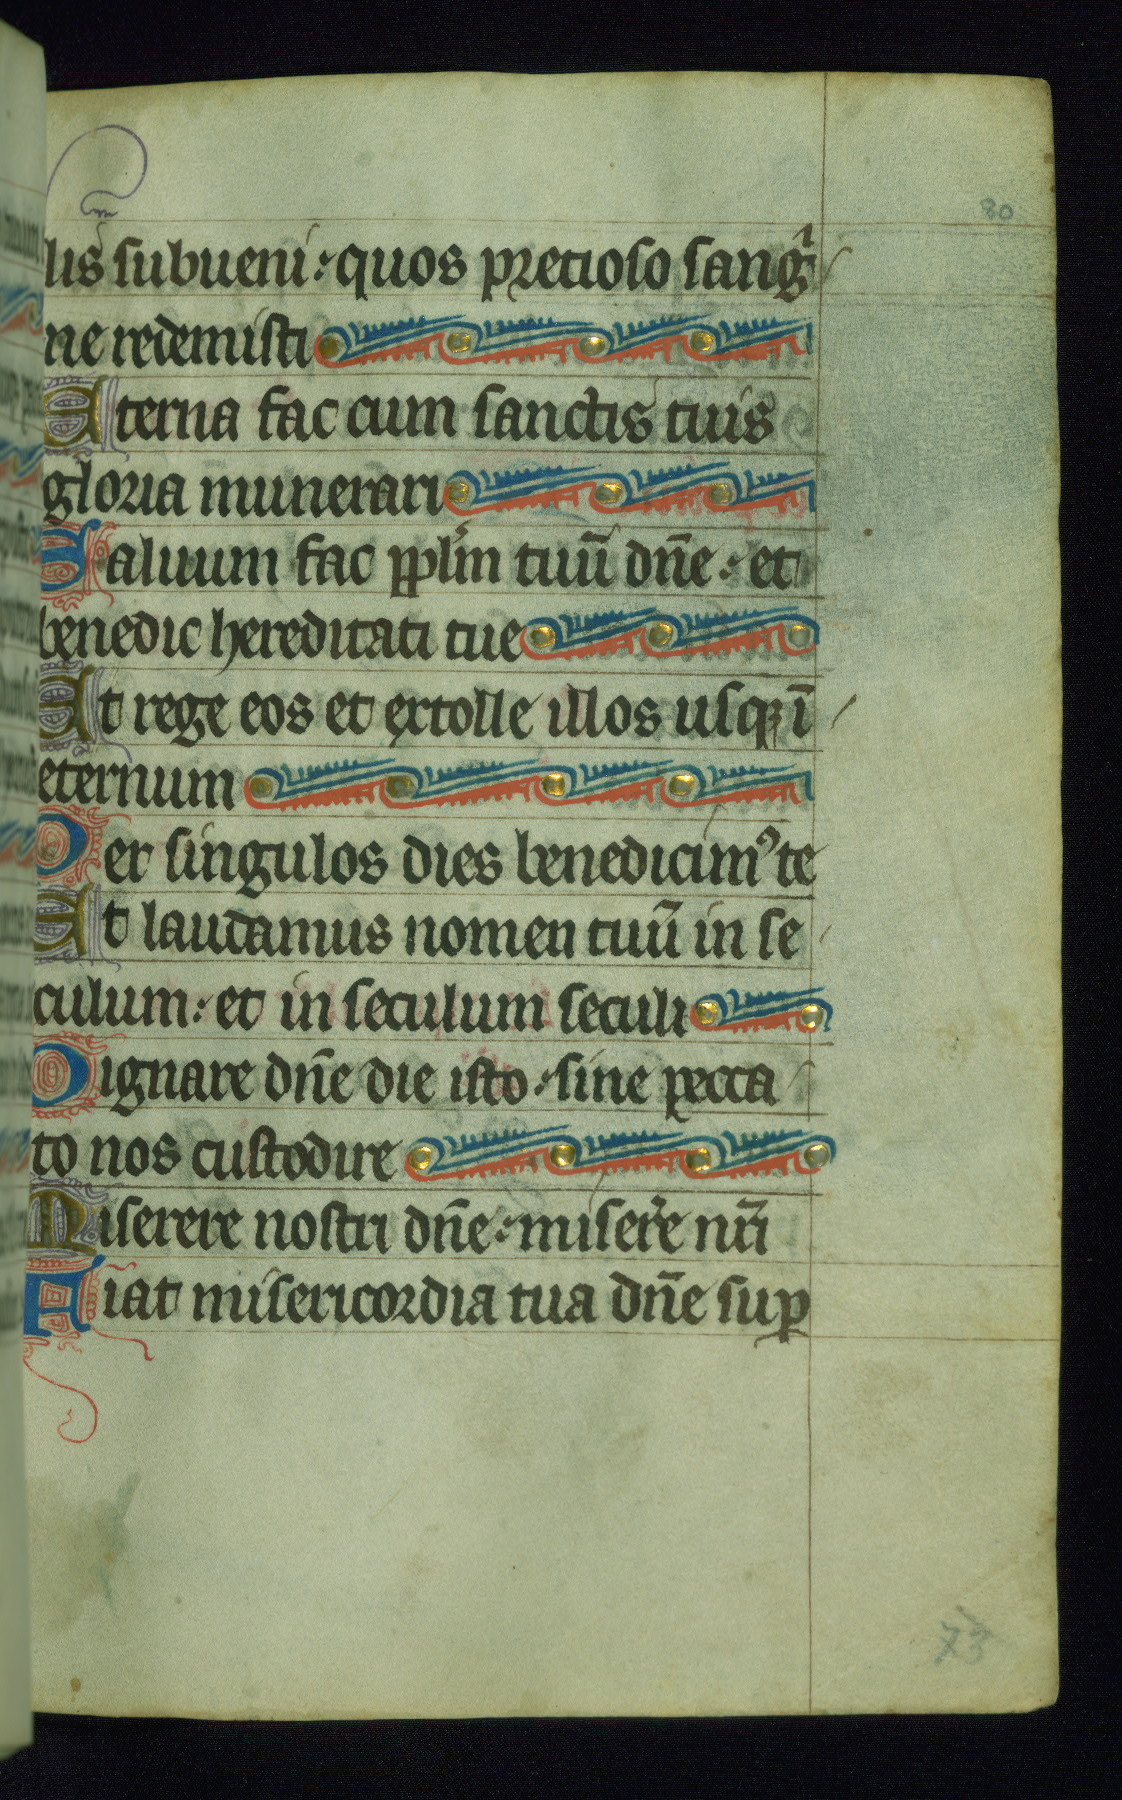 80
lis subueni: quos precioso sangⁱ
ne redemisti
Eterna fac cum sanctis tuis
gl̄oria munerari
Saluum fac pp̄lm tuū dn̄e: et
benedic hereditati tue
Et rege eos et extolle illos usqꝫ ī
eternum
Per singulos dies benedicimꝰ te
Et laudamus nomen tuū in se
culum: et in seculum seculi
Dignare dn̄e die isto: sine pecca
to nos custodire
Miserere nostri dn̄e: miser̄e nr̄i
Fiat misericordia tua dn̄e suꝑ
73